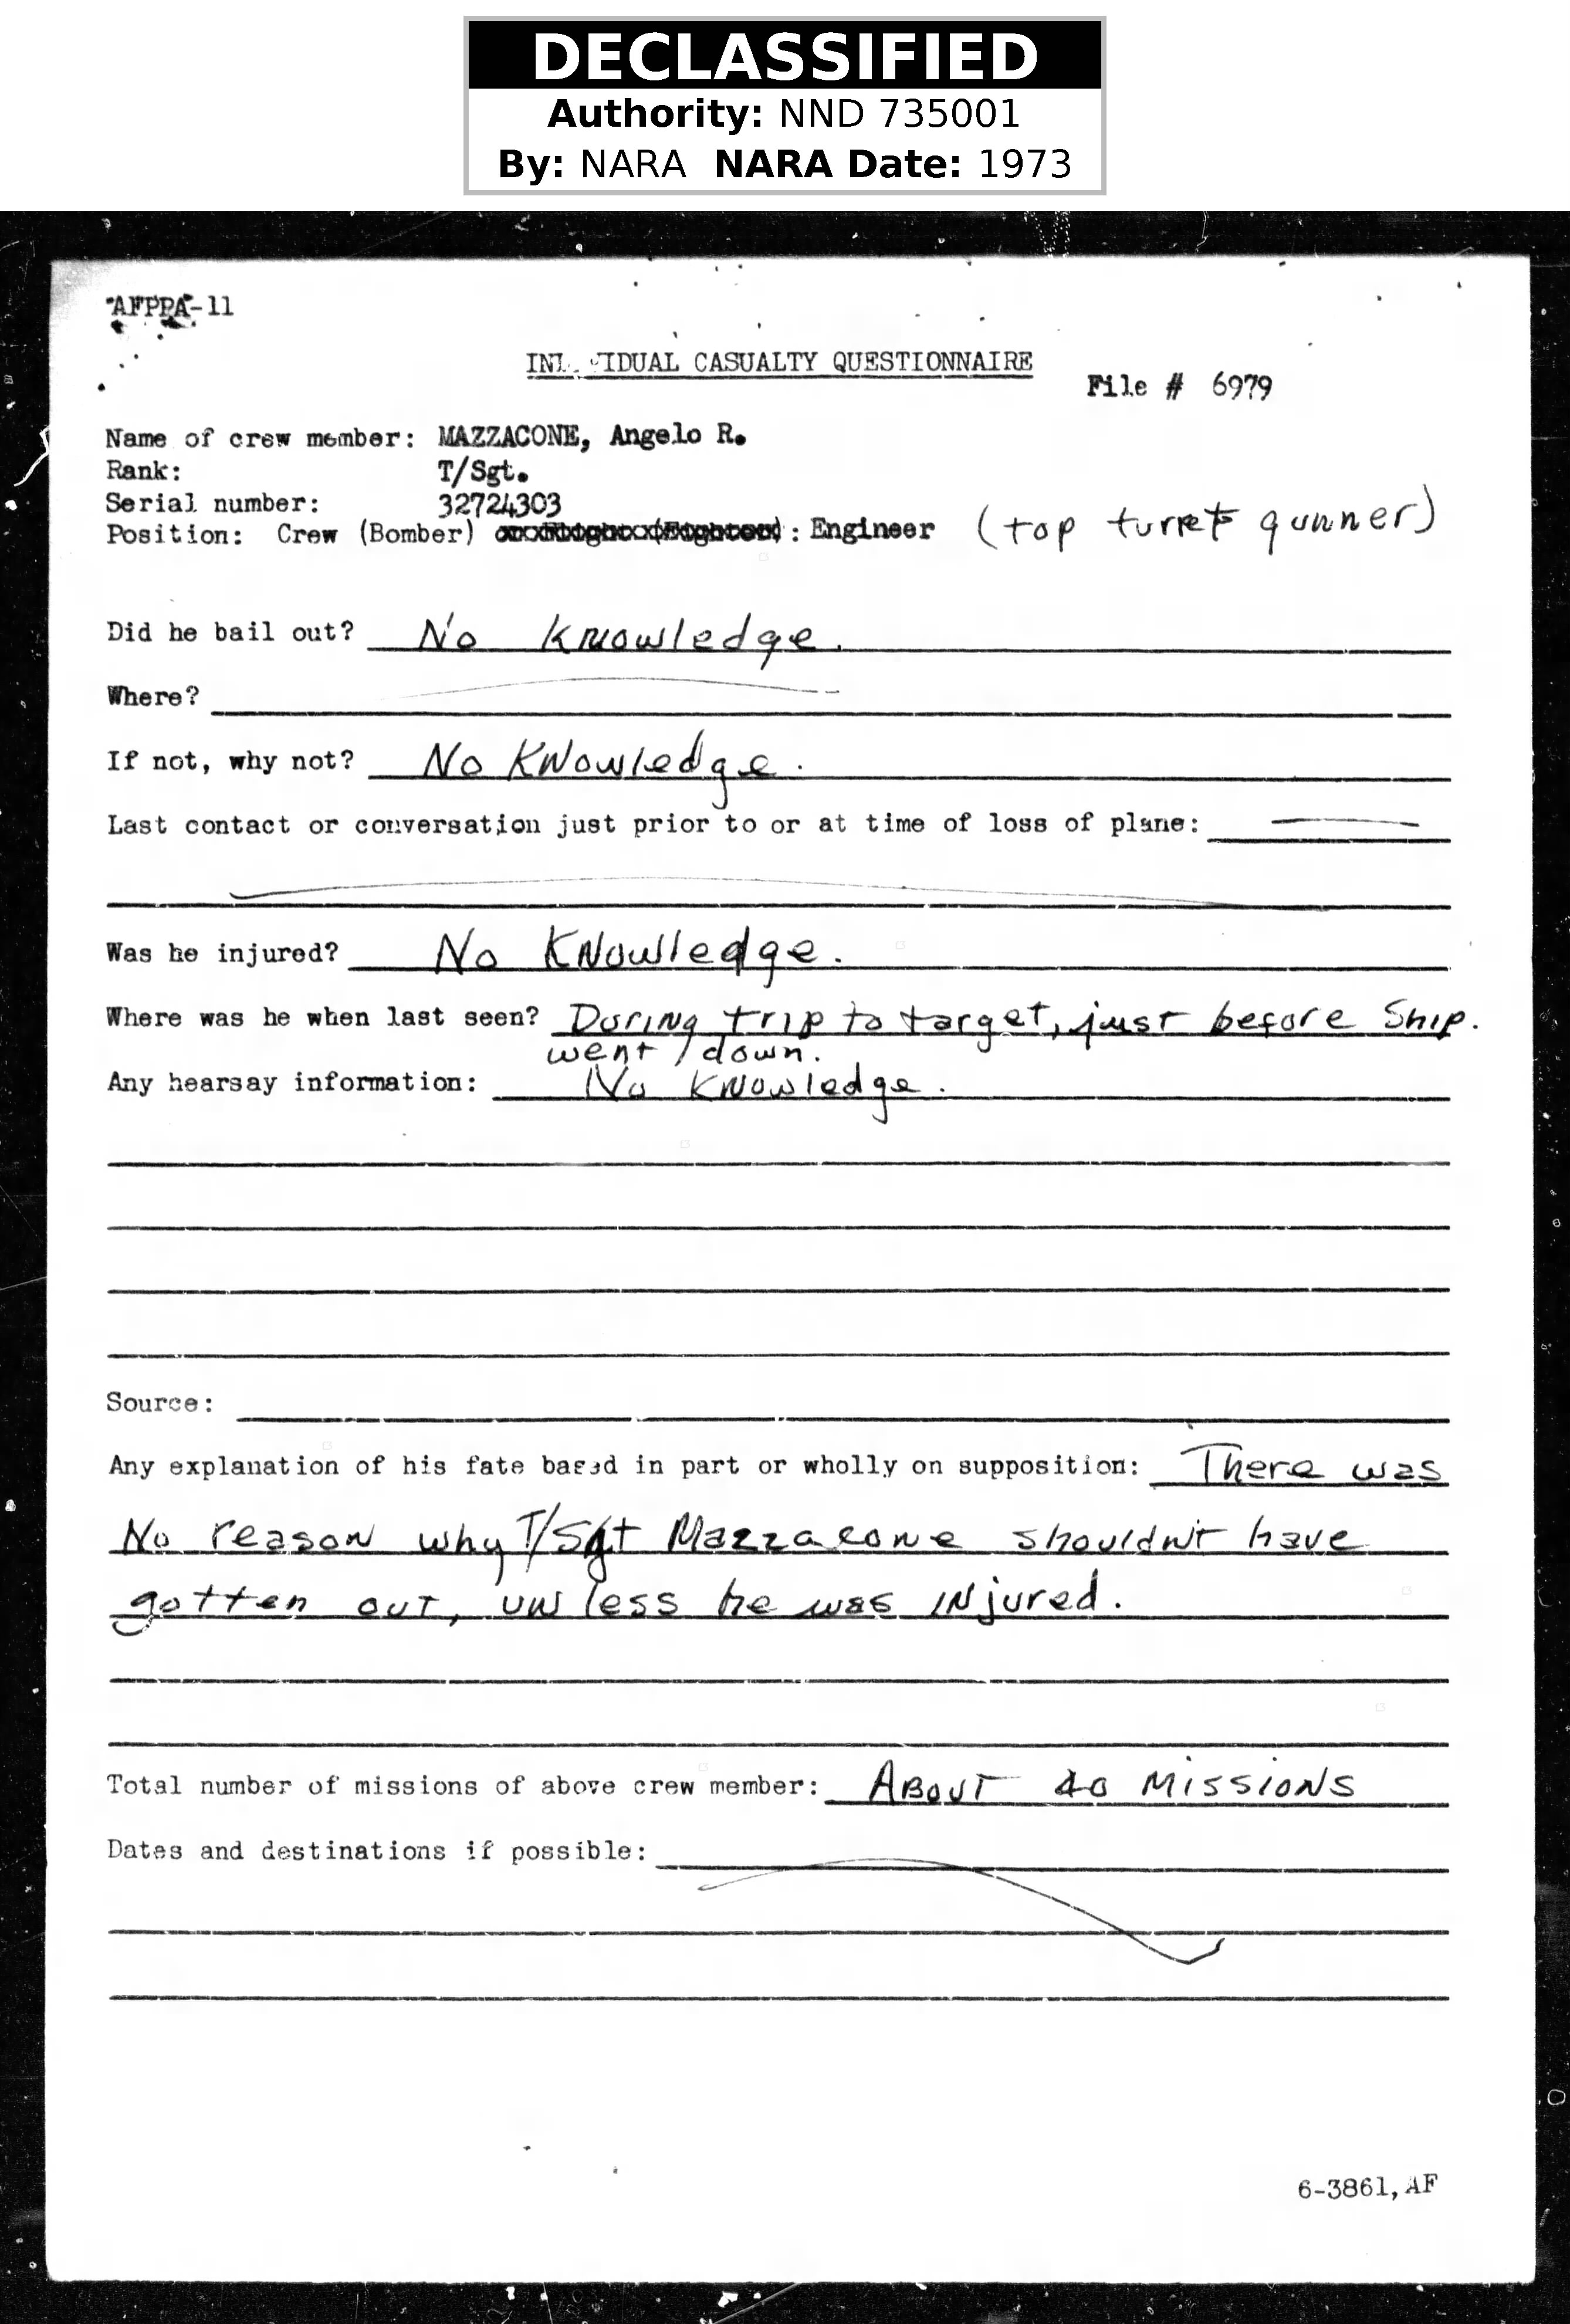 DECLASSIFIED
Authority: NND 735001
By: NARA NARA Date: 1973
AFPPA-11
INDIVIDUAL CASUALTY QUESTIONNAIRE
File # 6979
Name of crew member: MAZZACONE, Angelo R.
Rank: T/Sgt.
Serial number: 32724303
Position: Crew (Bomber) : Engineer (top turret gunner)
Did he bail out? No Knowledge.
Where?
If not, why not? No Knowledge.
Last contact or conversation just prior to or at time of loss of plane:
Was he injured? No Knowledge.
Where was he when last seen? During trip to target, just before Ship.
went down.
Any hearsay information: No Knowledge.
Source:
Any explanation of his fate based in part or wholly on supposition: There was
No reason why T/Sgt Mazzacone shouldn't have
gotten out, unless he was injured.
Total number of missions of above crew member: About 40 Missions
Dates and destinations if possible:
6-3861, AF